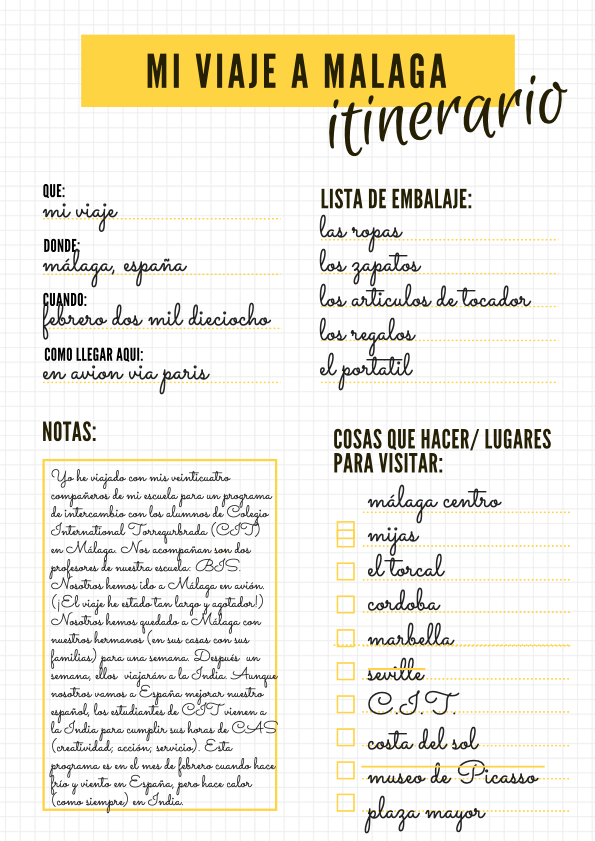 MI VIAJE A MALAGA
itinerario
QUE:
mi viaje
DONDE:
málaga, españa
CUANDO:
febrero dos mil dieciocho
COMO LLEGAR AQUI:
en avion via paris
LISTA DE EMBALAJE:
las ropas
los zapatos
los articulos de tocador
los regalos
el portatil
NOTAS:
Yo he viajado con mis veinticuatro
compañeros de mi escuela para un programa
de intercambio con los alumnos de Colegio
International Torrequrbrada (CIT)
en Málaga. Nos acompañan son dos
profesores de nuestra escuela: BIS.
Nosotros hemos ido a Málaga en avión.
(¡El viaje he estado tan largo y agotador!)
Nosotros hemos quedado a Málaga con
nuestros hermanos (en sus casas con sus
familias) para una semana. Después un
semana, ellos viajarán a la India. Aunque
nosotros vamos a España mejorar nuestro
español, los estudiantes de CIT vienen a
la India para cumplir sus horas de CAS
(creatividad; acción; servicio). Esta
programa es en el mes de febrero cuando hace
frío y viento en España, pero hace calor
(como siempre) en India.
COSAS QUE HACER/ LUGARES
PARA VISITAR:
málaga centro
mijas
el torcal
cordoba
marbella
seville
C.I.T.
costa del sol
museo de Picasso
plaza mayor